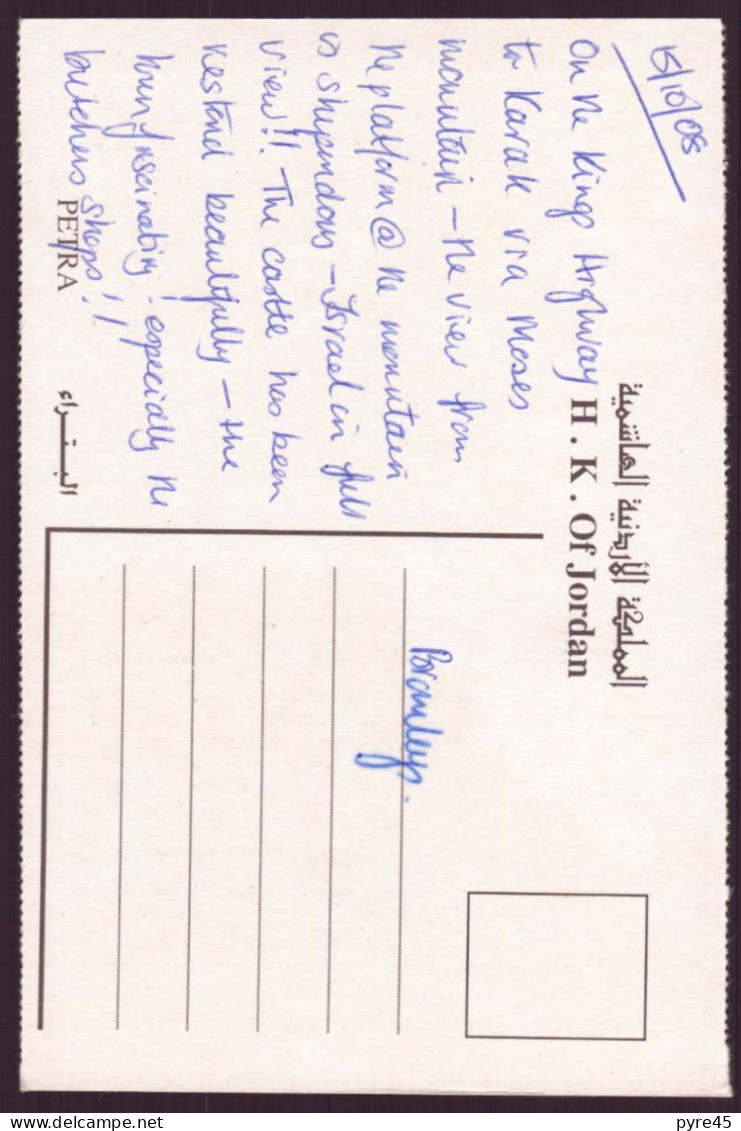 15/10/08
المملكة الأردنية الهاشمية
H. K. Of Jordan
On the Kings Highway
to Karak via Moses
mountain – the view from
the platform @ the mountain
is stupendous – Israel in full
view!! The castle has been
restored beautifully – the
town fascinating! especially the
butchers shops!!
PETRA
البتراء
Bramleys.
pyre45